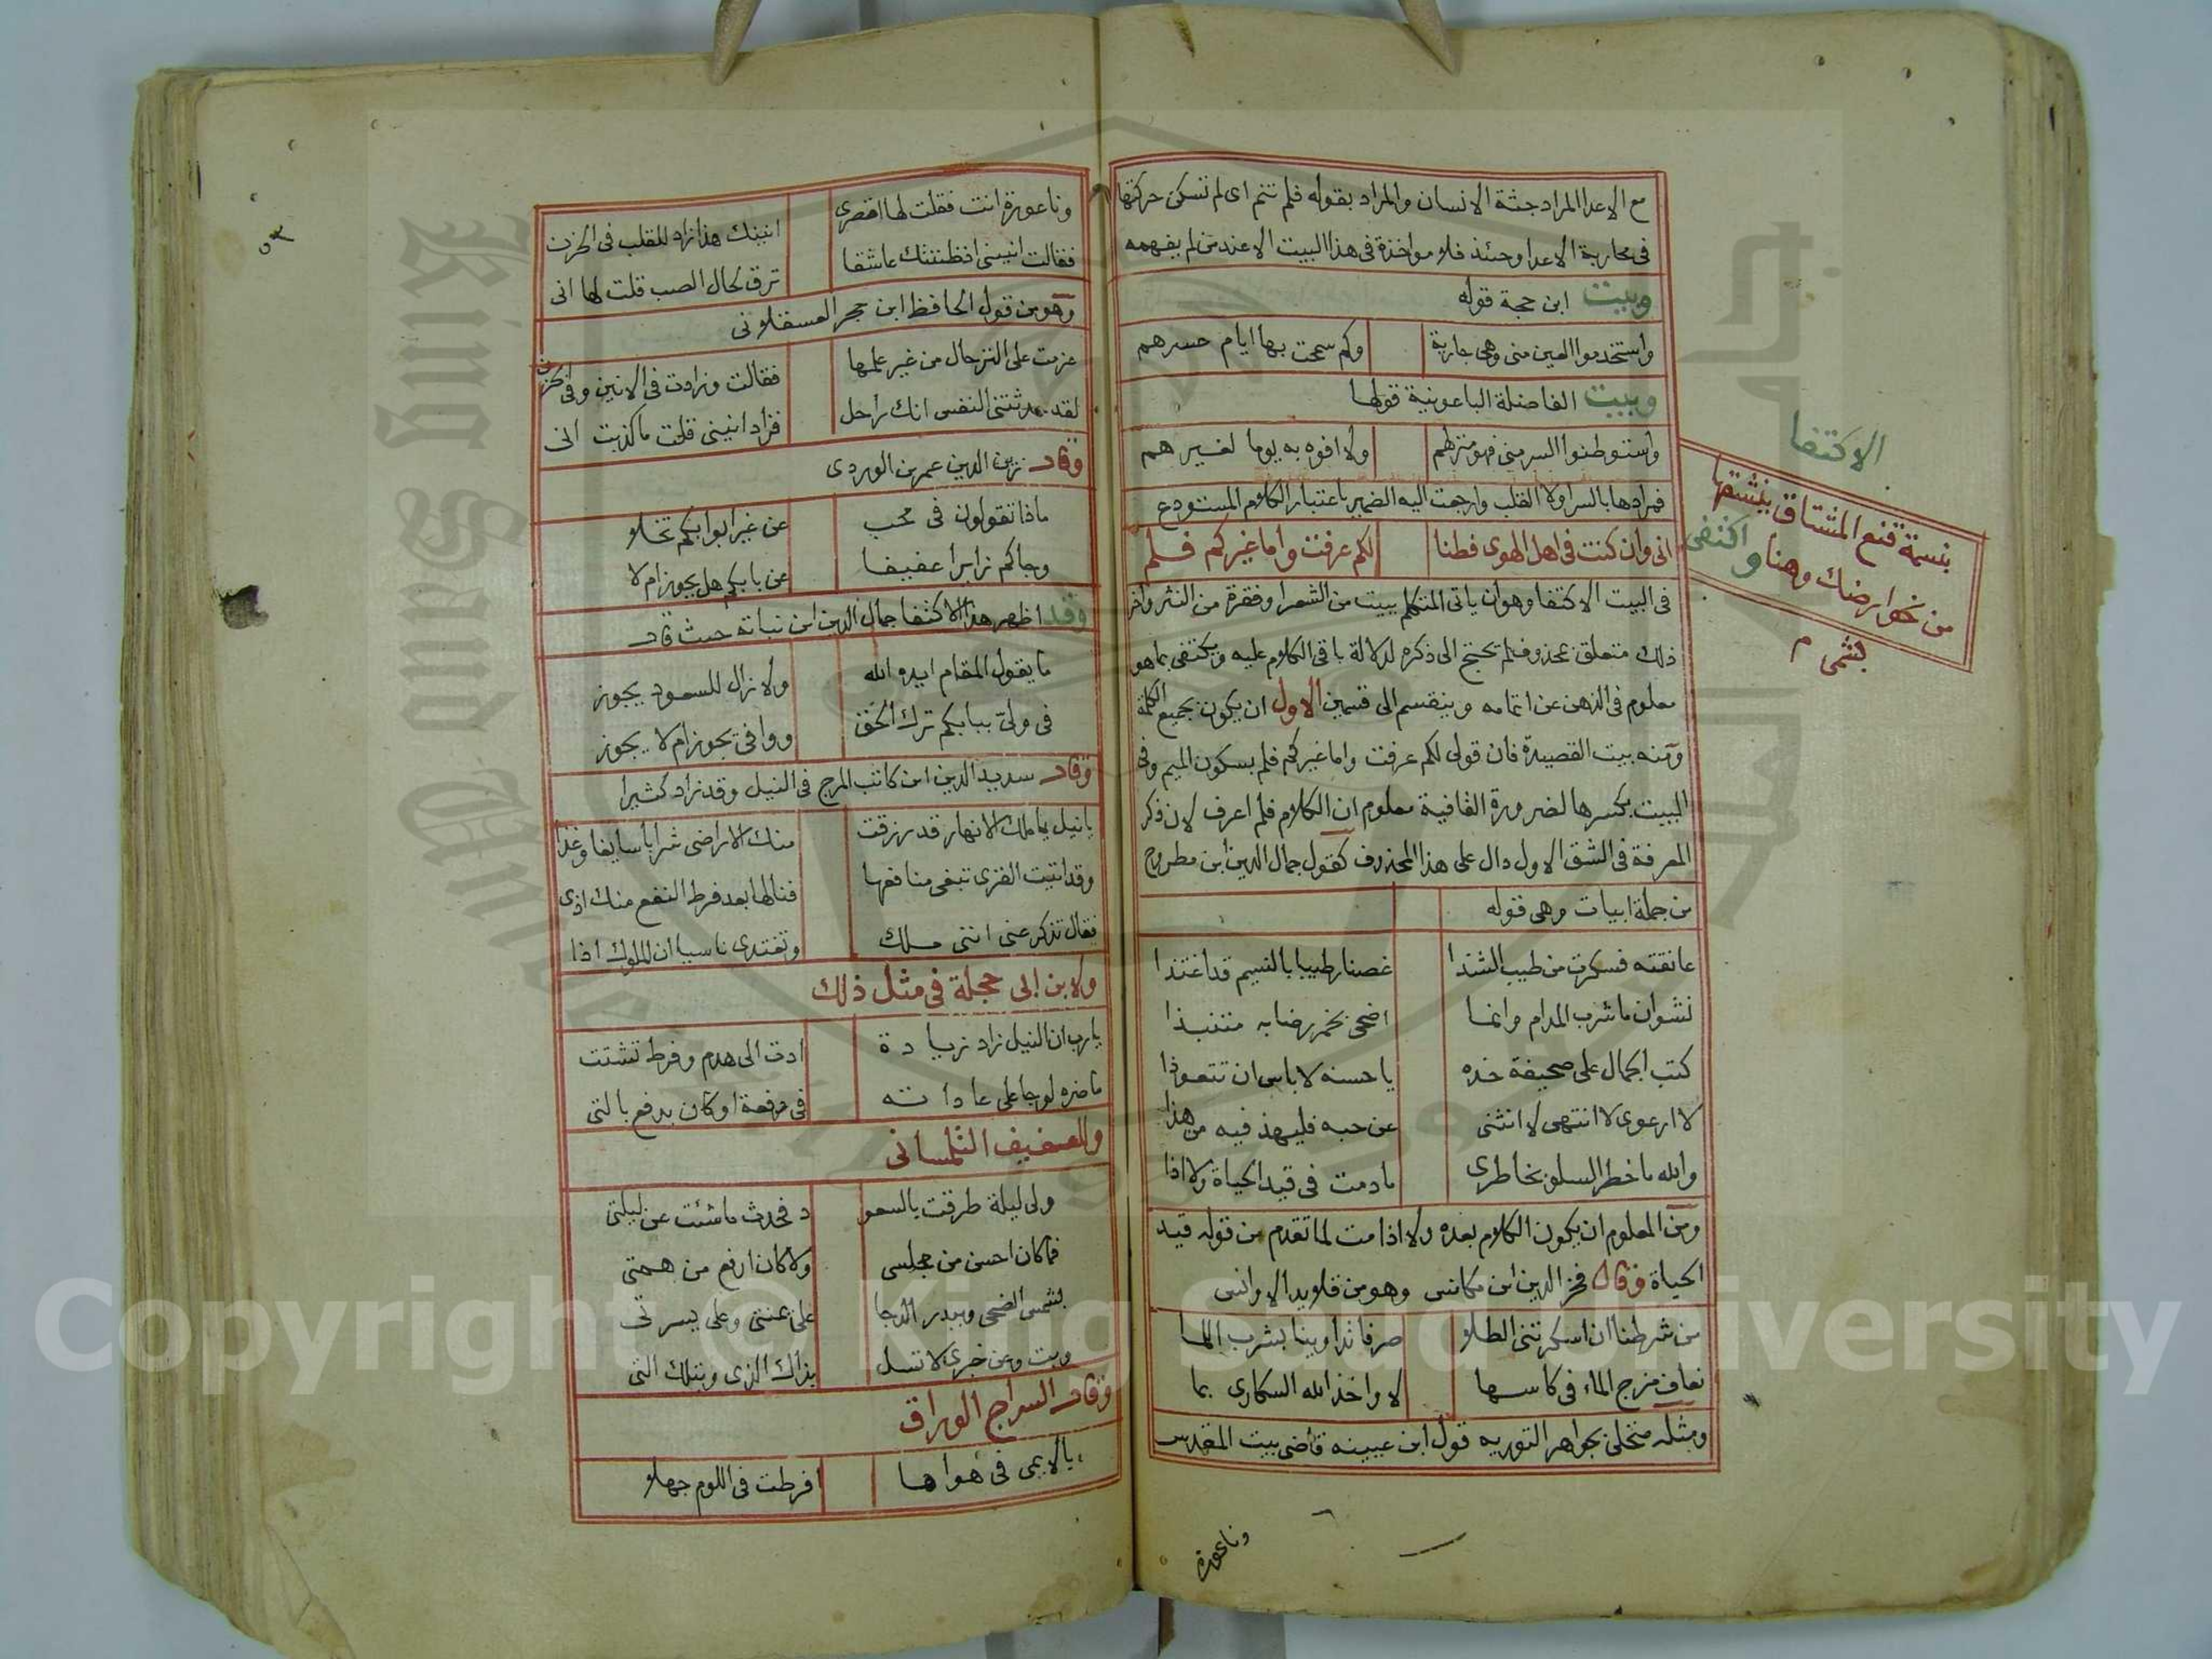 مع الاعدا المراد جثة الانسان والمراد بقوله فلم تنم اى لم تسكن حركتها
فى محاربة الاعدا وحنئذ فلا مواخذة فى هذا البيت الا عند من لم يفهمه
وبيت ابن حجة قوله
واستخدموا العين منى وهى جارية وكم سمحت بها ايام حسرهم
وبيت الفاضلة الباعونية قولها
واستوطنوا السر منى فهو منزلهم ولا افوه به يوما لغيرهم
فمرادها بالسر اولا القلب وارجعت اليه الضمير باعتبار الكلام المستودع
انى وان كنت فى اهل الهوى فطنا لكم عرفت واما غيركم فلم
فى البيت الاكتفا وهو ان ياتى المتكلم ببيت من الشعر او فقرة من النثر واخر
ذلك متعلق بمحذوف فلم يحتج الى ذكره لدلالة باقى الكلام عليه ويكتفى بما هو
معلوم فى الذهن عن اتمامه وينقسم الى قسمين الاول ان يكون بجميع الكلمة
ومنه بيت القصيدة فان قولى لكم عرفت واما غيركم فلم بسكون الميم وفى
البيت بكسرها لضرورة القافية معلوم ان الكلام فلم اعرف لان ذكر
المعرفة فى الشق الاول دال على هذا المحذوف كقول جمال الدين ابن مطروح
من جملة ابيات وهى قوله
عانقته فسكرت من طيب الشذا غصنا رطيبا بالنسيم قد اغتذا
نشوان ما شرب المدام وانما اضحى بخمر رضابه متنبذا
كتب الجمال على صحيفة خده يا حسنه لا باس ان تتعوذا
لا ارعوى لا انتهى لا انثنى عن حبه فليهذ فيه من هذا
والله ما خطر السلو بخاطرى ما دمت فى قيد الحياة ولا اذا
ومن المعلوم ان يكون الكلام بعده ولا اذا مت لما تقدم من قوله قيد
الحياة وقال فخر الدين ابن مكانس وهو من قلايد الاوانس
من شرطنا ان اسكرتنى الطلا صرفا تداوينا بشرب اللما
نعاف مزج الماء فى كاسها لا واخذ الله السكارى بما
ومثله متحلى بجواهر التوريه قول ابن عيينه قاضى بيت المقدس
وناعورة
الاكتفا
بنسمة قنع المشتاق ينشقها
من نحو ارضك وهنا واكتفى
بشمى م
٥٣
وناعورة انت فقلت لها اقصرى انينك هذا زاد للقلب فى الحزن
فقالت انينى اذ ظننتك عاشقا ترق لحال الصب قلت لها انى
وهو من قول الحافظ ابن حجر العسقلانى
عزمت على الترحال من غير علمها فقالت وزادت فى الانين وفى الحزن
لقد حدثتنى النفس انك راحل فزاد انينى قلت ما كذبت انى
وقال زين الدين عمر بن الوردى
ماذا تقولون فى محب عن غير ابوابكم تخلا
وجاكم زايرا عفيفا عن بابكم هل يجوز ام لا
وقد اظهر هذا الاكتفا جمال الدين ابن نباته حيث قال
ما يقول المقام ايده الله ولا زال للسعود يجوز
فى ولىّ ببابكم ترك الخق ووافى يجوز ام لا يجوز
وقال سديد الدين ابن كاتب المرج فى النيل وقد زاد كثيرا
يا نيل يا ملك الانهار قد رزقت منك الاراضى شرابا سايغا وغذا
وقد اتيت القرى تبغى منافعها فنالها بعد فرط النفع منك اذى
فقال تذكر عنى اننى ملك وتغتدى ناسيا ان الملوك اذا
ولابن ابى حجلة فى مثل ذلك
يا رب ان النيل زاد زيادة ادت الى هدم وفرط تشتت
ما ضره لو جا على عاداته فى دفعة او كان يدفع بالتى
وللعفيف التلمسانى
ولى ليلة طرقت بالسعو د فحدث ما شئت عن ليلتى
فما كان احسن من مجلسى ولا كان ارفع من همتى
بشمس الضحى وببدر الدجا على يمنتى وعلى يسرتى
وبت وعن خبرى لا تسل بذاك الذى وبتلك التى
وقال السراج الوراق
يا لايمى فى هواها افرطت فى اللوم جهلا
King Saud University
Copyright © King Saud University